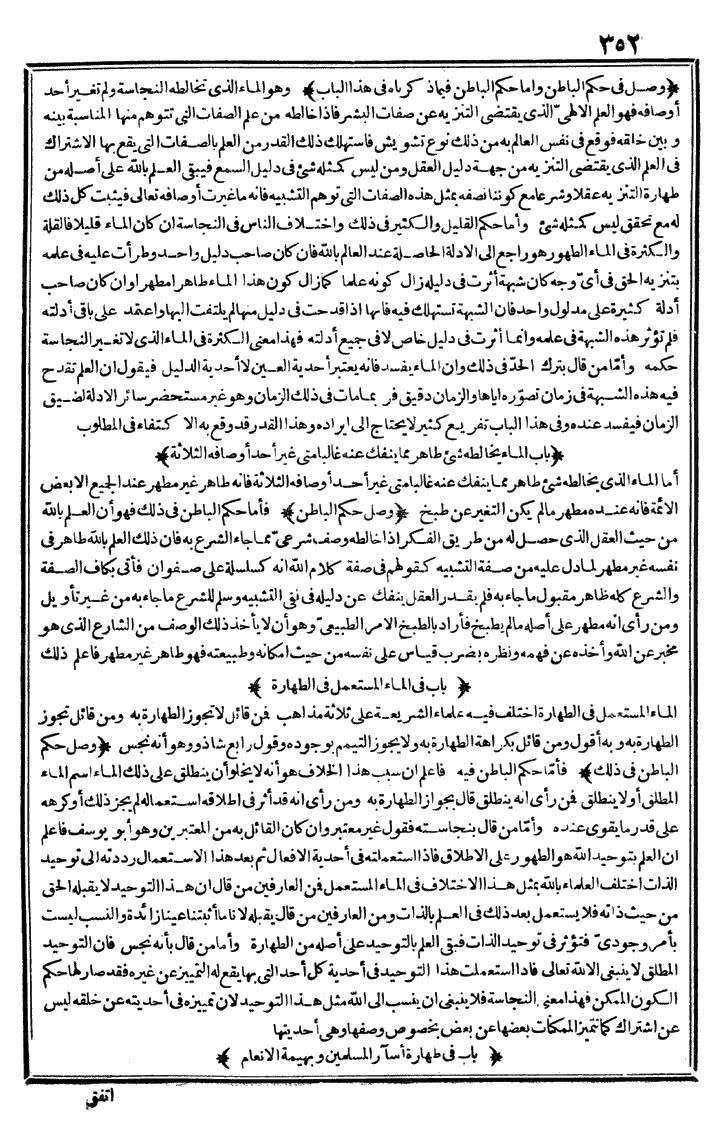 ٣٥٢
﴿وصل في حكم الباطن واما حكم الباطن فيما ذكرناه في هذا الباب﴾ وهو الماء الذي تخالطه النجاسة ولم تغير أحد
أوصافه فهو العلم الالهي الذي يقتضي التنزيه عن صفات البشر فاذا خالطه من علم الصفات التي تتوهم منها المناسبة بينه
وبين خلقه فوقع في نفس العالم به من ذلك نوع تشويش فاستهلك ذلك القدر من العلم بالصفات التي يقع بها الاشتراك
في العلم الذي يقتضي التنزيه من جهة دليل العقل ومن ليس كمثله شئ في دليل السمع فيبقى العلم بالله على أصله من
طهارة التنزيه عقلا وشرعا مع كوننا نصفه بمثل هذه الصفات التي توهم التشبيه فانه ما غيرت أوصافه تعالى فيثبت كل ذلك
له مع تحقق ليس كمثله شئ وأما حكم القليل والكثير في ذلك واختلاف الناس في النجاسة ان كان الماء قليلا فالقلة
والكثرة في الماء الطهور هو راجع الى الادلة الحاصلة عند العالم بالله فان كان صاحب دليل واحد وطرأت عليه في علمه
بتنزيه الحق في أي وجه كان شبهة أثرت في دليله زال كونه علما كما زال كون هذا الماء طاهرا مطهرا وان كان صاحب
أدلة كثيرة على مدلول واحد فان الشبهة تستهلك فيه فانها اذا قدحت في دليل منها لم يلتفت اليها واعتمد على باقي أدلته
فلم تؤثر هذه الشبهة في علمه وانما أثرت في دليل خاص لا في جميع أدلته فهذا معنى الكثرة في الماء الذي لا تغير النجاسة
حكمه وأما من قال بترك الحد في ذلك وان الماء يفسد فانه يعتبر أحدية العين لا أحدية الدليل فيقول ان العلم تقدح
فيه هذه الشبهة في زمان تصوره اياها والزمان دقيق فربما مات في ذلك الزمان وهو غير مستحضر سائر الادلة لضيق
الزمان فيفسد عنده وفي هذا الباب تفريع كثير لا يحتاج الى ايراده وهذا القدر قد وقع به الاكتفاء في المطلوب
﴿باب الماء يخالطه شئ طاهر مما ينفك عنه غالبا متى غير أحد أوصافه الثلاثة﴾
أما الماء الذي يخالطه شئ طاهر مما ينفك عنه غالبا متى غير أحد أوصافه الثلاثة فانه طاهر غير مطهر عند الجميع الا بعض
الائمة فانه عنده مطهر ما لم يكن التغير عن طبخ ﴿وصل حكم الباطن﴾ فأما حكم الباطن في ذلك فهو أن العلم بالله
من حيث العقل الذي حصل له من طريق الفكر اذا خالطه وصف شرعي مما جاء الشرع به فان ذلك العلم بالله طاهر في
نفسه غير مطهر لما دل عليه من صفة التشبيه كقولهم في صفة كلام الله انه كسلسلة على صفوان فأتى بكاف الصفة
والشرع كله ظاهر مقبول ما جاء به فلم يقدر العقل ينفك عن دليله في نفي التشبيه وسلم للشرع ما جاء به من غير تأويل
ومن رأى انه مطهر على أصله ما لم يطبخ فأراد بالطبخ الامر الطبيعي وهو أن لا يأخذ ذلك الوصف من الشارع الذي هو
مخبر عن الله وأخذه عن فهمه ونظره بضرب قياس على نفسه من حيث امكانه وطبيعته فهو طاهر غير مطهر فاعلم ذلك
﴿باب في الماء المستعمل في الطهارة﴾
الماء المستعمل في الطهارة اختلف فيه علماء الشريعة على ثلاثة مذاهب فمن قائل لا تجوز الطهارة به ومن قائل تجوز
الطهارة به وبه أقول ومن قائل بكراهة الطهارة به ولا يجوز التيمم بوجوده وقول رابع شاذ وهو أنه نجس ﴿وصل حكم
الباطن في ذلك﴾ فأما حكم الباطن فيه فاعلم ان سبب هذا الخلاف هو أنه لا يخلو أن ينطلق على ذلك الماء اسم الماء
المطلق أو لا ينطلق فمن رأى انه ينطلق قال بجواز الطهارة به ومن رأى انه قد أثر في اطلاقه استعماله لم يجز ذلك أو كرهه
على قدر ما يقوى عنده وأما من قال بنجاسته فقول غير معتبر وان كان القائل به من المعتبرين وهو أبو يوسف فاعلم
ان العلم بتوحيد الله هو الطهور على الاطلاق فاذا استعملته في أحدية الافعال ثم بعد هذا الاستعمال رددته الى توحيد
الذات اختلف العلماء بالله بمثل هذا الاختلاف في الماء المستعمل فمن العارفين من قال ان هذا التوحيد لا يقبله الحق
من حيث ذاته فلا يستعمل بعد ذلك في العلم بالذات ومن العارفين من قال يقبله لانا ما أثبتنا عينا زائدة والنسب ليست
بأمر وجودي فتؤثر في توحيد الذات فبقي العلم بالتوحيد على أصله من الطهارة وأما من قال بأنه نجس فان التوحيد
المطلق لا ينبغي الا لله تعالى فاذا استعملت هذا التوحيد في أحدية كل أحد التي بها يقع له التمييز عن غيره فقد صار لها حكم
الكون الممكن فهذا معنى النجاسة فلا ينبغي ان ينسب الى الله مثل هذا التوحيد لان تميزه في أحديته عن خلقه ليس
عن اشتراك كما تتميز الممكنات بعضها عن بعض بخصوص وصفها وهي أحديتها
﴿باب في طهارة أسآر المسلمين وبهيمة الانعام﴾
اتفق